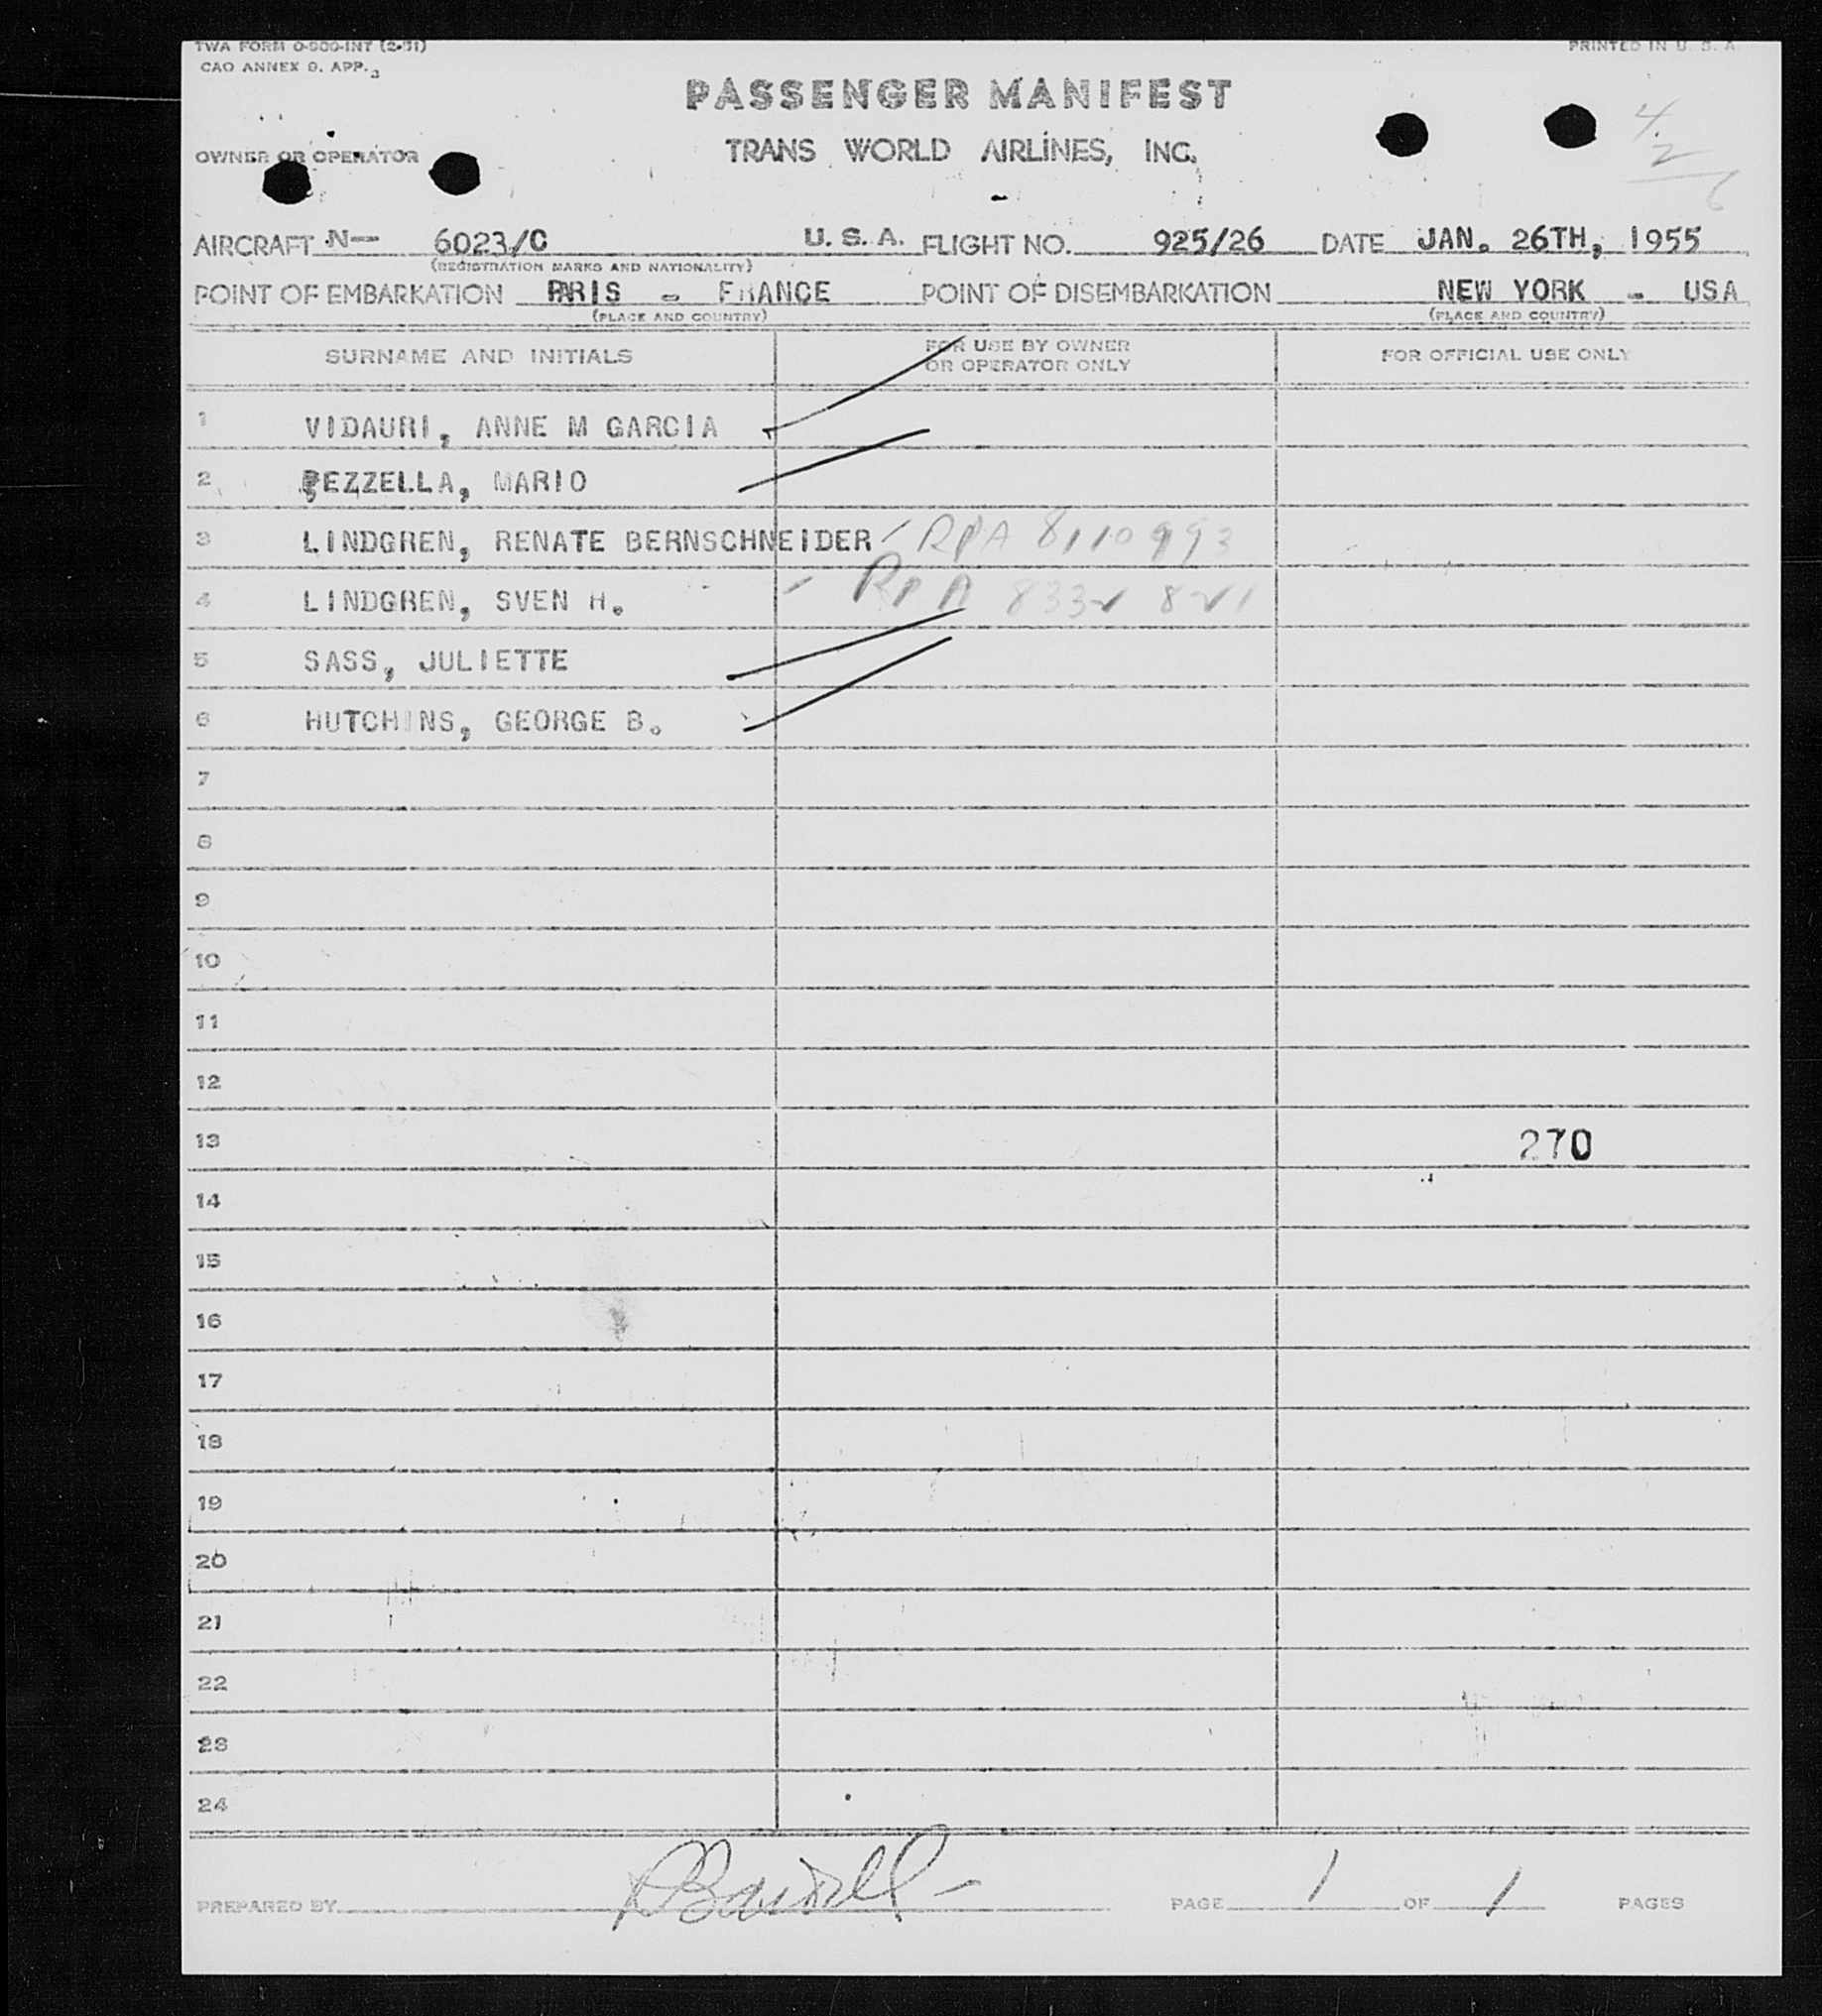 TWA FORM 0-900-INT (2-51)
PRINTED IN U. S. A
CAO ANNEX 9, APP. 3
PASSENGER MANIFEST
4
2
6
OWNER OR OPERATOR
TRANS WORLD AIRLINES, INC.
AIRCRAFT N— 6023/C U. S. A. FLIGHT NO. 925/26 DATE JAN. 26TH, 1955
(REGISTRATION MARKS AND NATIONALITY)
POINT OF EMBARKATION PARIS - FRANCE POINT OF DISEMBARKATION NEW YORK - USA
(PLACE AND COUNTRY) (PLACE AND COUNTRY)
SURNAME AND INITIALS FOR USE BY OWNER OR OPERATOR ONLY FOR OFFICIAL USE ONLY
1 VIDAURI, ANNE M GARCIA
2 PEZZELLA, MARIO
3 LINDGREN, RENATE BERNSCHNEIDER RPA 8110993
4 LINDGREN, SVEN H. RPA
5 SASS, JULIETTE
6 HUTCHINS, GEORGE B.
7
8
9
10
11
12
13 270
14
15
16
17
18
19
20
21
22
23
24
PREPARED BY PAGE 1 OF 1 PAGES